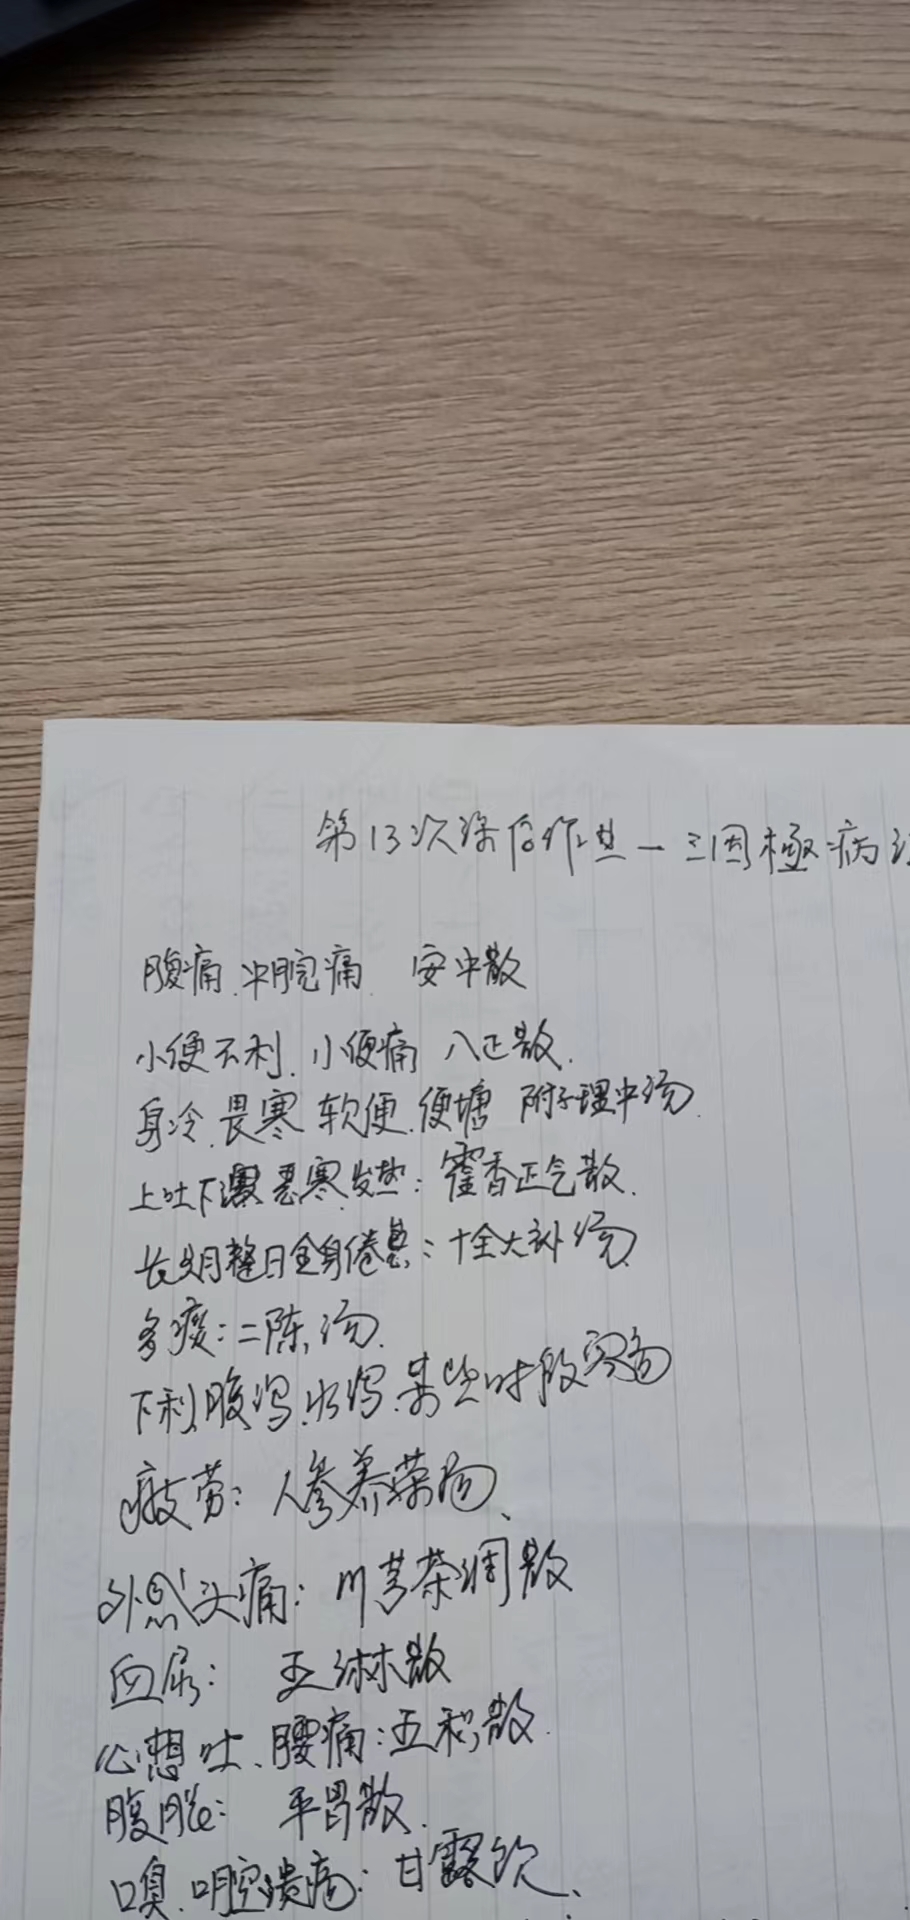 第13次课后作业一三因極病
腹痛.中脘痛 安中散
小便不利.小便痛 八正散.
身冷.畏寒 软便.便塘 附子理中汤.
上吐下瀉 恶寒.发热:霍香正气散.
长年月整日全身倦怠:十全大补汤.
多痰:二陈汤.
下利.腹泻.水泻.某些时段
疲劳:人参养荣汤、
外感头痛:川芎茶调散
血尿: 五淋散
心想吐、腰痛:五积散.
腹胀: 平胃散.
口臭.口腔溃疡:甘露饮、